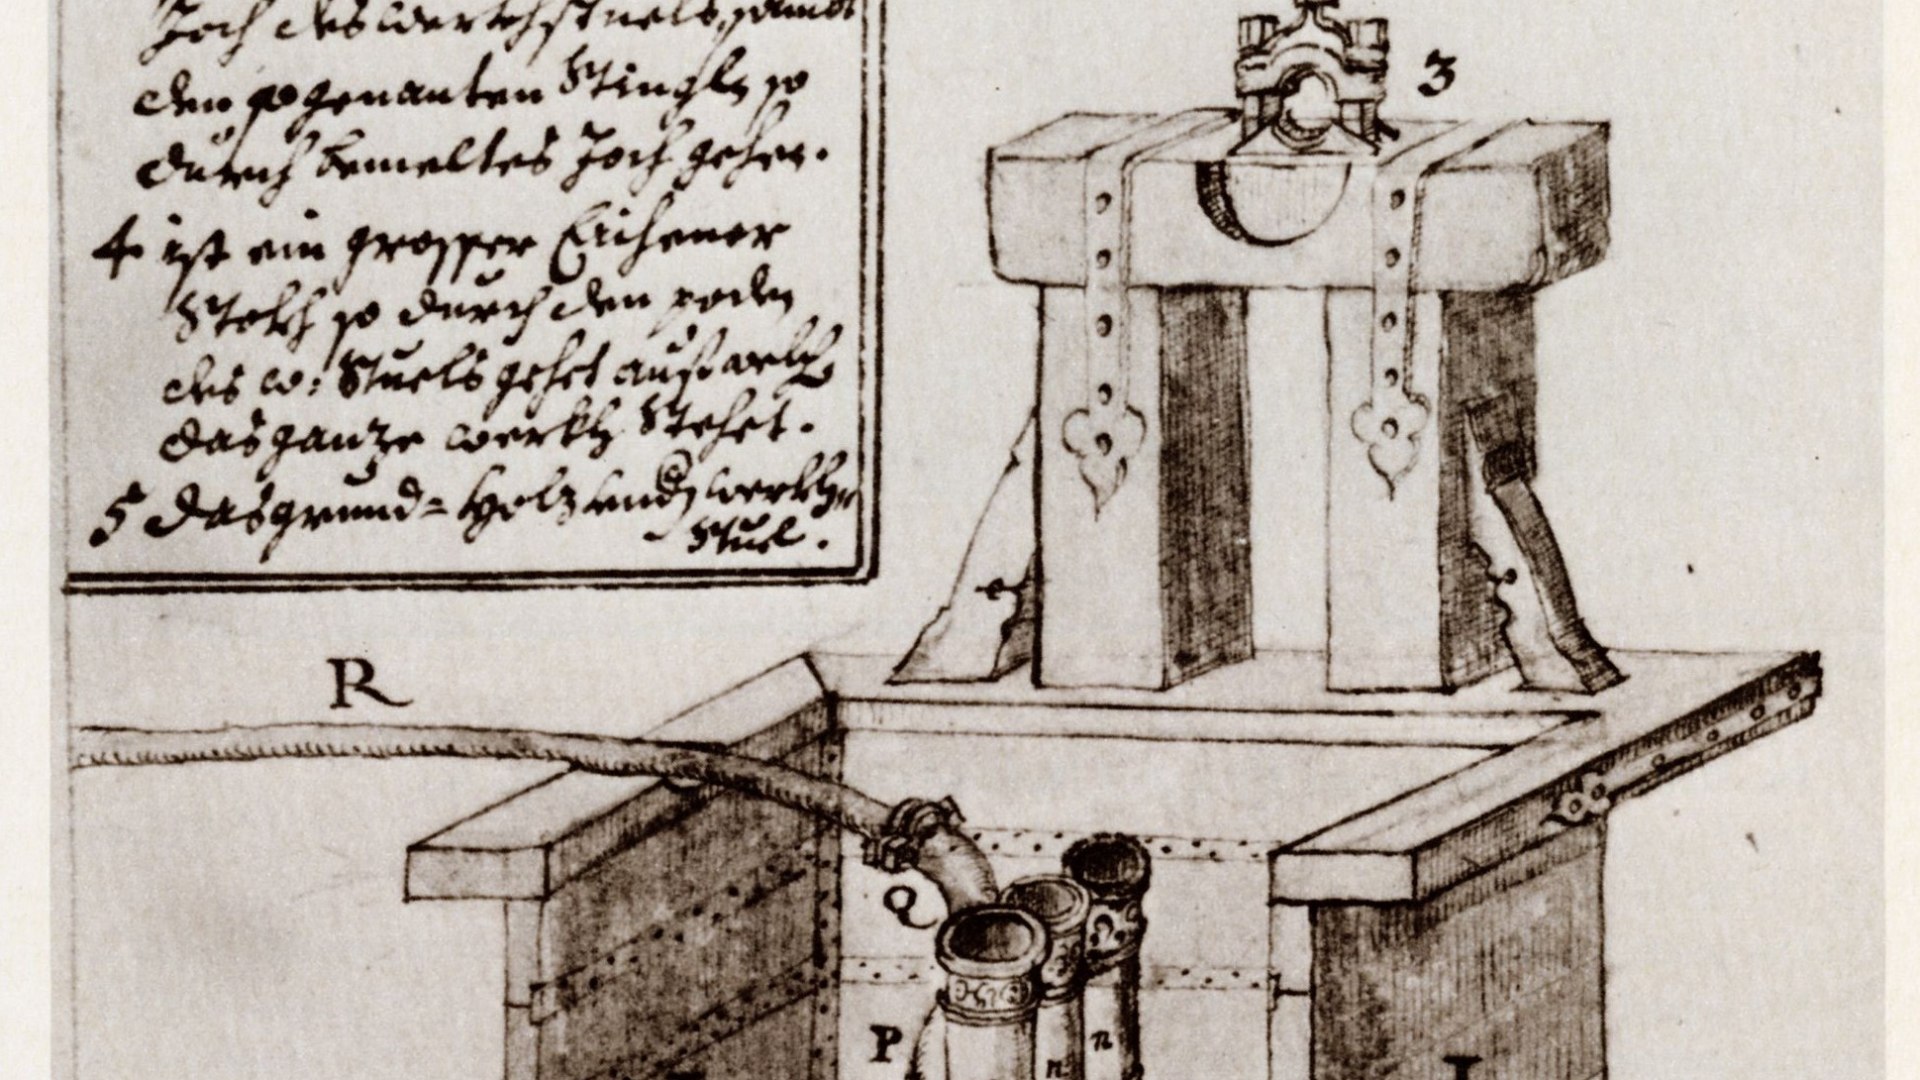 Joch des werckhstuels, sambt
den so genanten Stingln so
durch bemeltes Joch gehen.
4 ist ein grosser Eichener
Stokh so durch den poden
des w: Stuels gehet auf welch
das ganze werkh Stehet.
5 das grund = Holz und werkh
Stuel.
3
R
Q
P
n
n